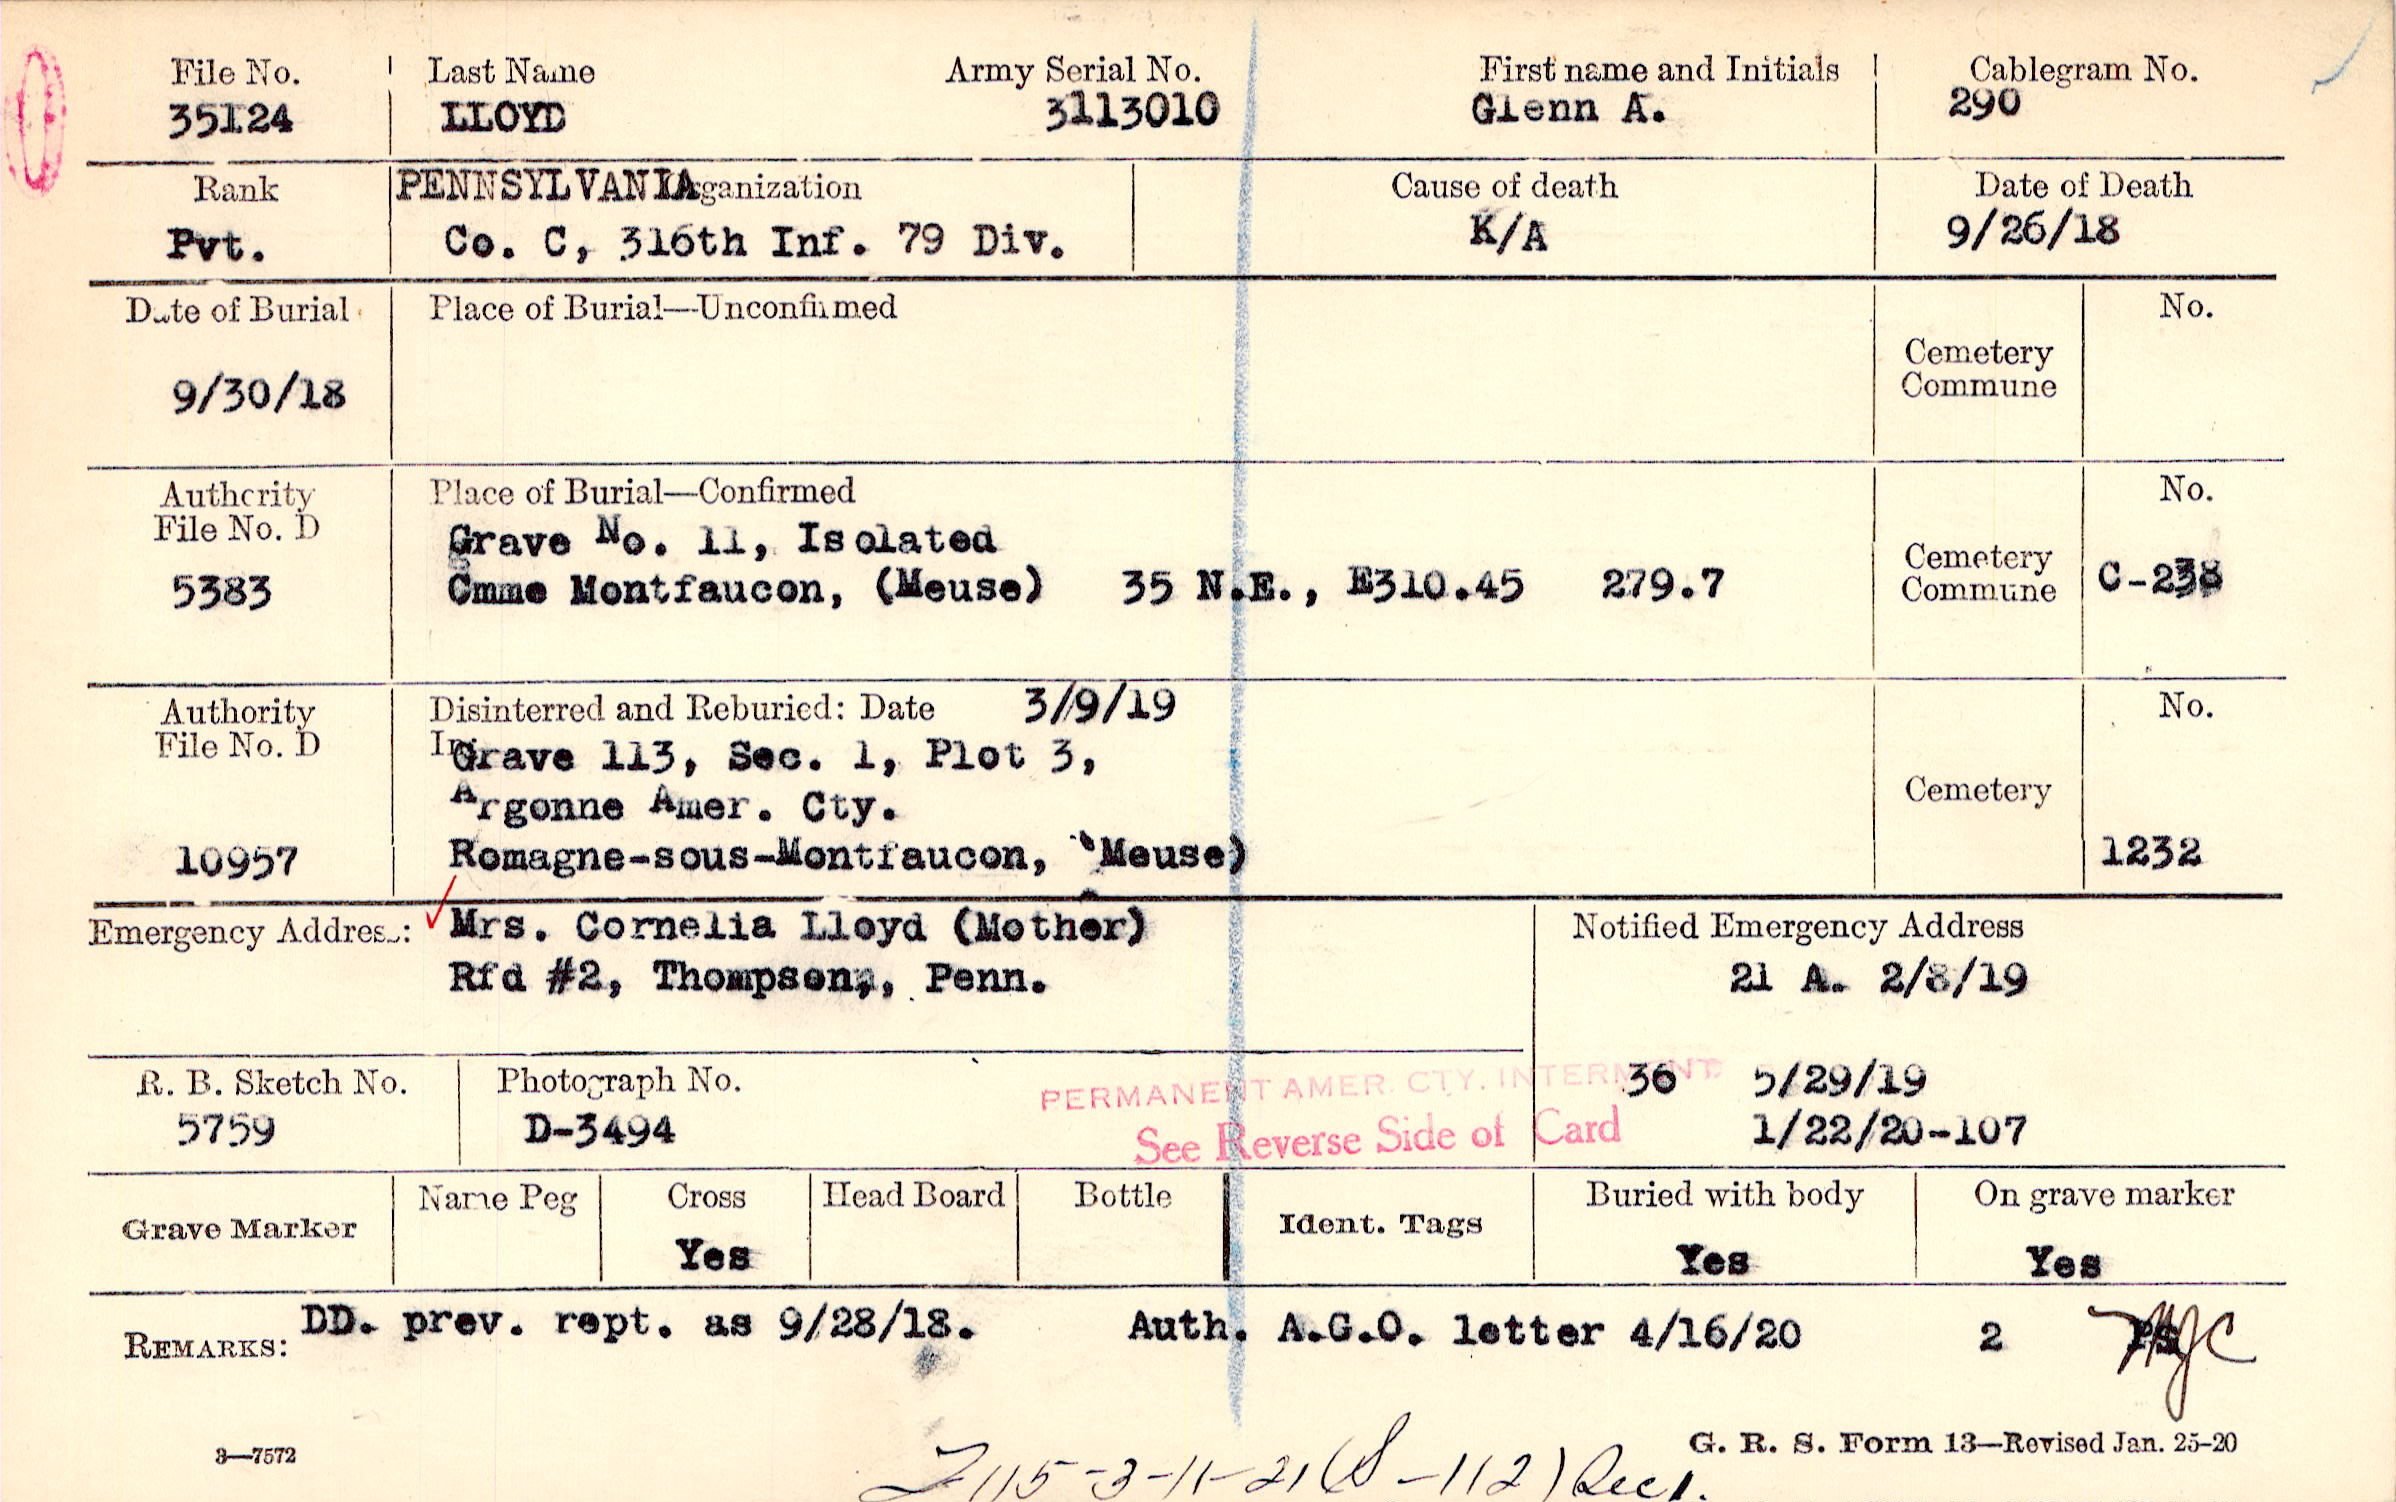 File No. Last Name Army Serial No. First name and Initials Cablegram No.
35124 LLOYD 3113010 Glenn A. 290
Rank PENNSYLVANIA ganization Cause of death Date of Death
Pvt. Co. C, 316th Inf. 79 Div. K/A 9/26/18
Date of Burial Place of Burial—Unconfirmed No.
Cemetery
Commune
9/30/18
Authority Place of Burial—Confirmed No.
File No. D Grave No. 11, Isolated Cemetery
5383 Cmme Montfaucon, (Meuse) 35 N.E., E310.45 279.7 Commune C-238
Authority Disinterred and Reburied: Date 3/9/19 No.
File No. D In Grave 113, Sec. 1, Plot 3,
Argonne Amer. Cty. Cemetery
10957 Romagne-sous-Montfaucon, (Meuse) 1232
Emergency Address: Mrs. Cornelia Lloyd (Mother) Notified Emergency Address
Rfd #2, Thompson, Penn. 21 A. 2/8/19
R. B. Sketch No. Photograph No. PERMANENT AMER. CTY. INTERMENT 36 5/29/19
5759 D-3494 See Reverse Side of Card 1/22/20-107
Grave Marker Name Peg Cross Head Board Bottle Ident. Tags Buried with body On grave marker
Yes Yes Yes
REMARKS: DD. prev. rept. as 9/28/18. Auth. A.G.O. letter 4/16/20 2
3—7572 G. R. S. Form 13—Revised Jan. 25-20
115-3-11-21 (S-112) Rec1.